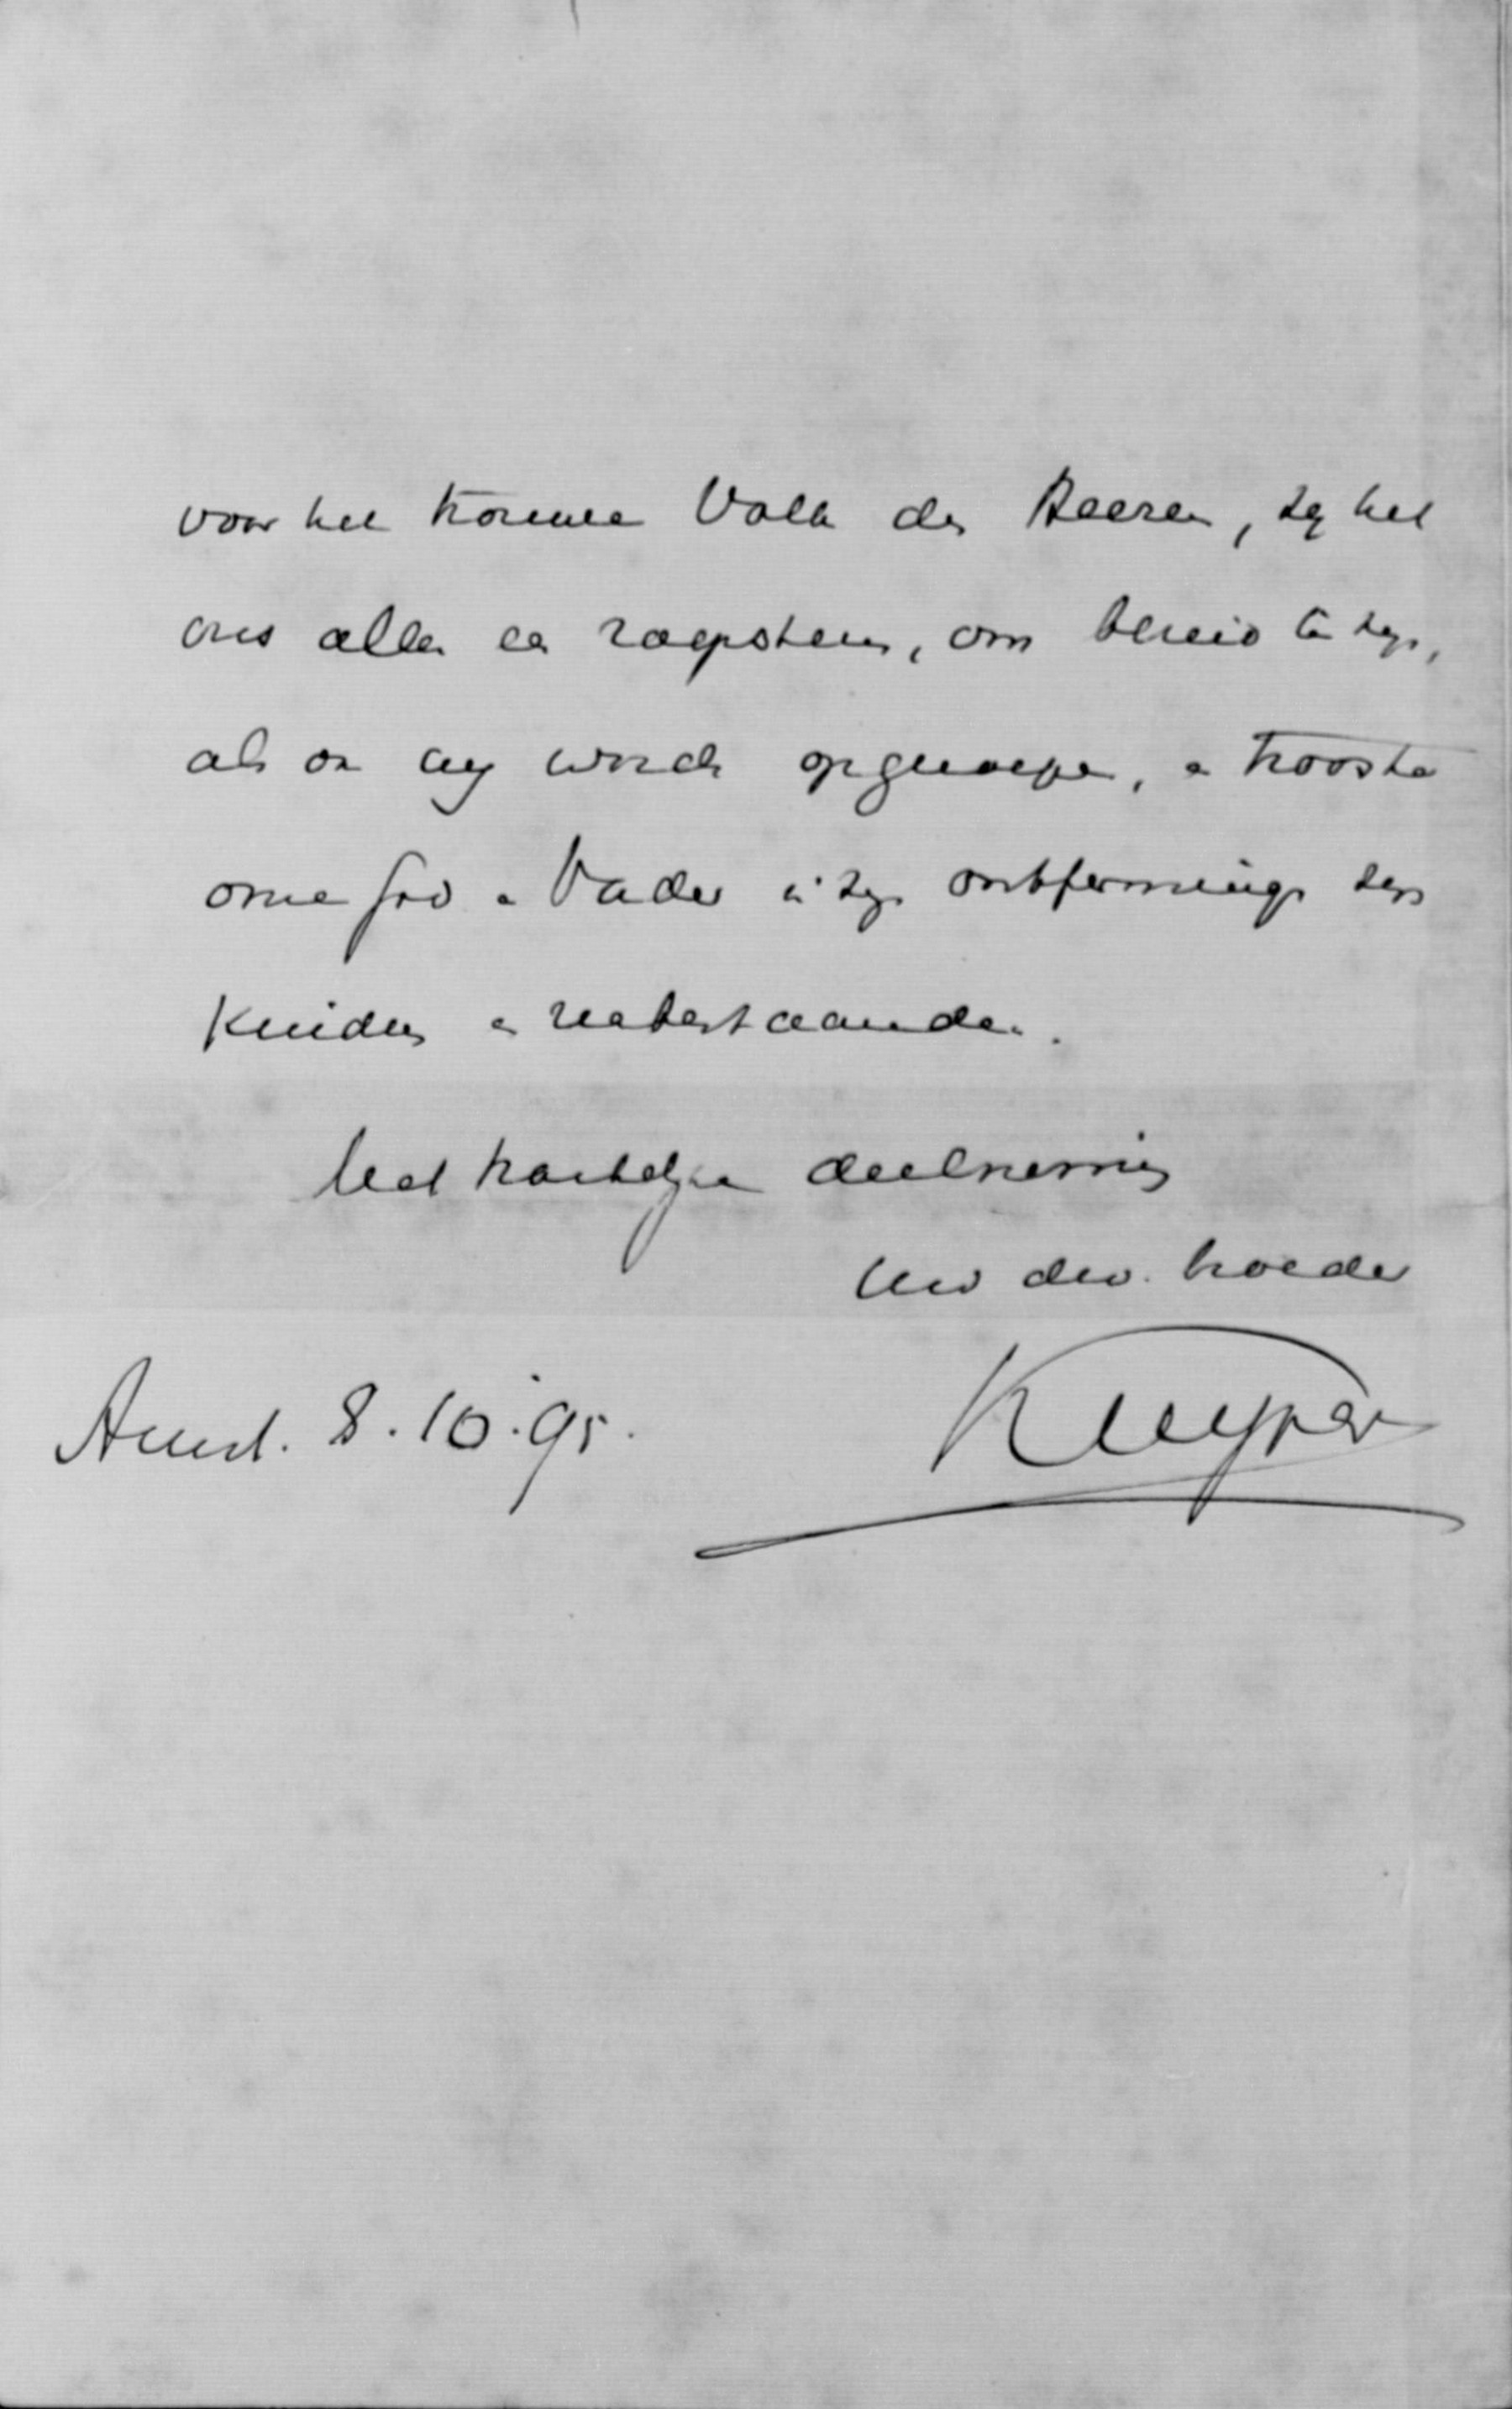 voor het trouwe Volk des Heeren, zij het
ons allen een roepstem, om bereid te zijn,
als ook wij worden opgeroepen, en trooste
onze God en Vader in zijn ontferming zijn
Kinders en nabestaanden.
Met hartelijke deelneming
Uw dw. broeder
Kuyper
Amst. 8.10.'95.